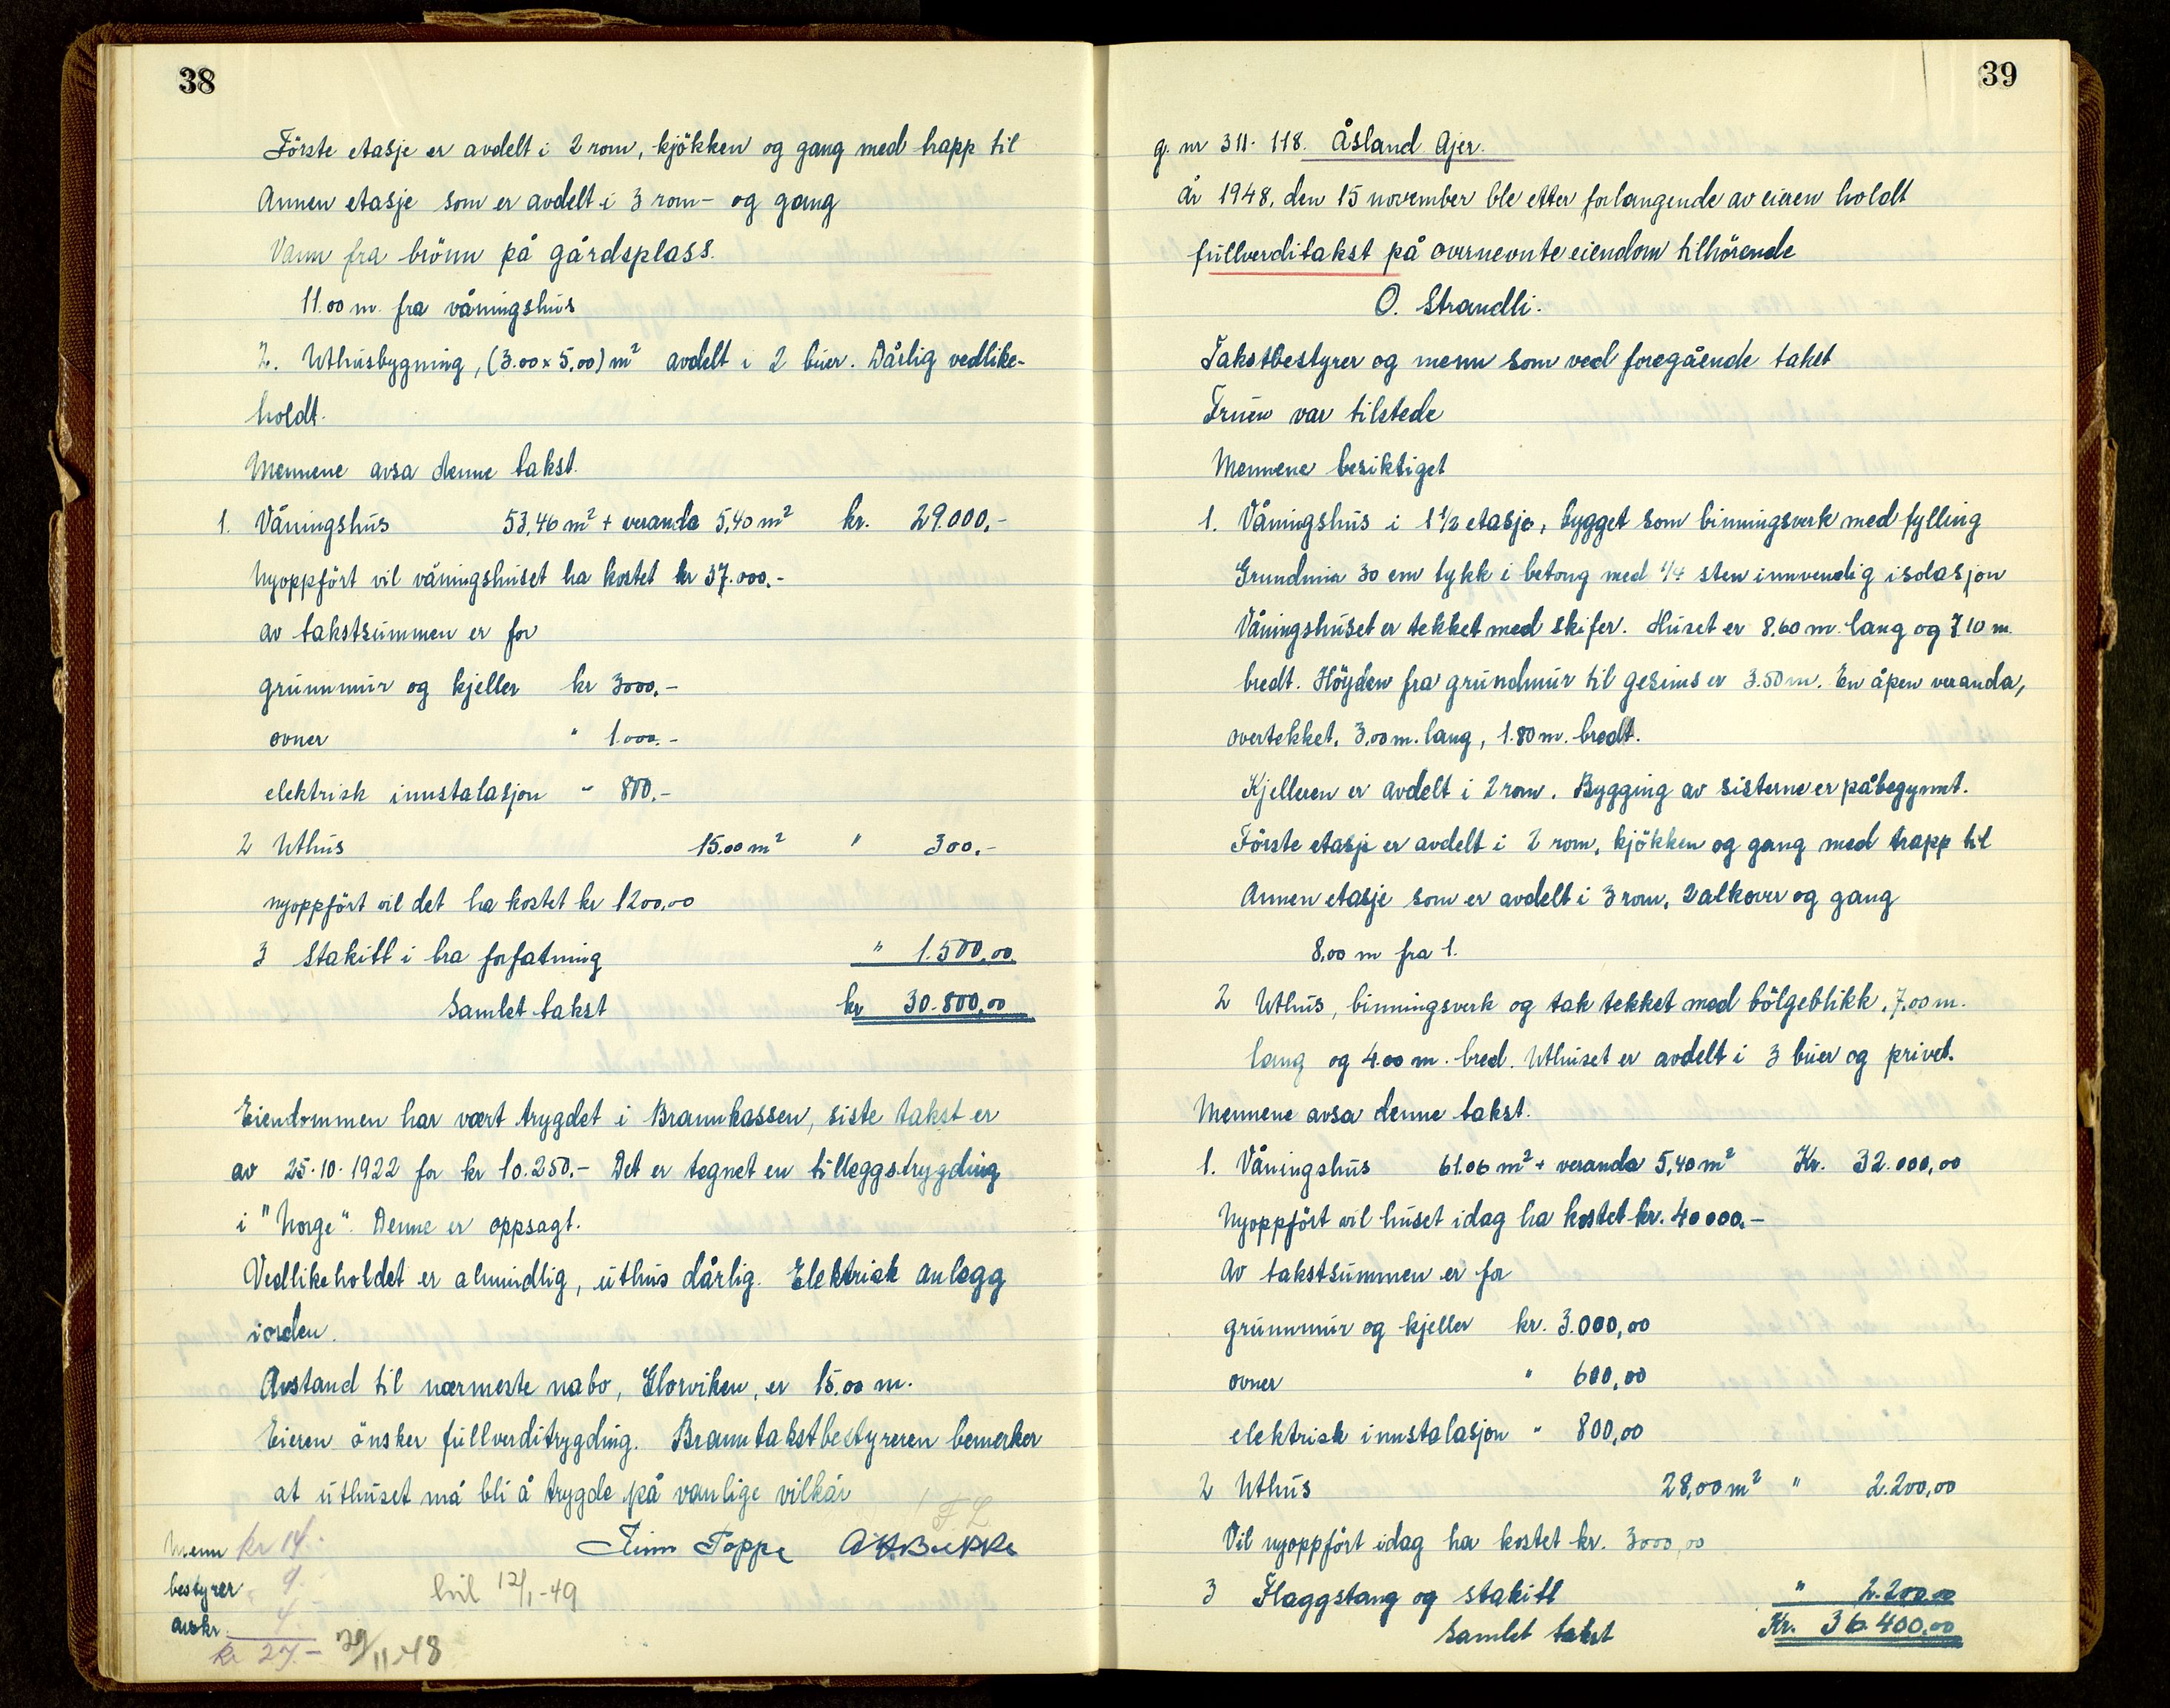 38
Förste etasje er avdelt i 2 rom, kjökken og gang med trapp til
Annen etasje som er avdelt i 3 rom- og gang
Vann fra brönn på gårdsplass.
11.00 m. fra våningshus
2. Uthusbygning, (3.00 x 5,00) m² avdelt i 2 buer. Dårlig vedlike-
holdt.
Mennene avsa denne takst.
1. Våningshus 53,46 m² + veranda 5,40 m² kr. 29.000,-
Nyoppfört vil våningshuset ha kostet kr 37.000.-
av takstsummen er for
grunnmur og kjeller kr 3000,-
ovner " 1.000.-
elektrisk innstalasjon " 800.-
2 Uthus 15.00 m² " 300.-
nyoppfört vil det ha kostet kr 1200,00
3 Stakitt i bra forfatning " 1.500,00
Samlet takst kr 30.800,00
Eiendommen har vært trygdet i Brannkassen, siste takst er
av 25.10.1922 for kr 10.250.- Det er tegnet en tilleggstrygding
i "Norge". Denne er oppsagt.
Vedlikeholdet er almindlig, uthus dårlig. Elektrisk anlegg
iorden.
Avstand til nærmeste nabo, Glorviken, er 15.00 m.
Eieren önsker fullverditrygding. Branntakstbestyreren bemerker
at uthuset må bli å trygde på vanlige vilkår
Finn Toppe
Menn kr 14.-
bestyrer 9.-
avskr. 4.-
kr 27.- 29/11-48
12/1-49
39
g. nr 311. 118. Åsland Ajer.
år 1948, den 15 november ble etter forlangende av eieren holdt
fullverditakst på overnevnte eiendom tilhörende
O. Strandli.
Takstbestyrer og menn som ved foregående takst
Fruen var tilstede
Mennene besiktiget
1. Våningshus i 1 1/2 etasje, bygget som binningsverk med fylling
Grundmur 30 cm tykk i betong med 1/4 sten innvendig isolasjon
Våningshuset er tekket med skifer. Huset er 8,60 m. lang og 7.10 m.
bredt. Höyden fra grundmur til gesims er 3.50 m. En åpen veranda,
overtekket, 3,00 m. lang, 1.80 m. bredt.
Kjelleren er avdelt i 2 rom. Bygging av sisterne er påbegynnt.
Förste etasje er avdelt i 2 rom, kjökken og gang med trapp til
Annen etasje som er avdelt i 3 rom, 2 alkover og gang
8,00 m fra 1.
2 Uthus, binningsverk og tak tekket med bölgeblikk, 7,00 m.
lang og 4.00 m. bred. Uthuset er avdelt i 3 buer og privet.
Mennene avsa denne takst.
1. Våningshus 61.06 m² + veranda 5,40 m² Kr. 32.000,00
Nyoppfört vil huset idag ha kostet kr. 40000.-
Av takstsummen er for
grunnmur og kjeller kr. 3.000,00
ovner " 600,00
elektrisk innstalasjon " 800,00
2 Uthus 28,00 m² " 2.200,00
Vil nyoppfört idag ha kostet kr. 3000,00
3 Flaggstang og stakitt " 2.200,00
Samlet takst Kr. 36.400.00